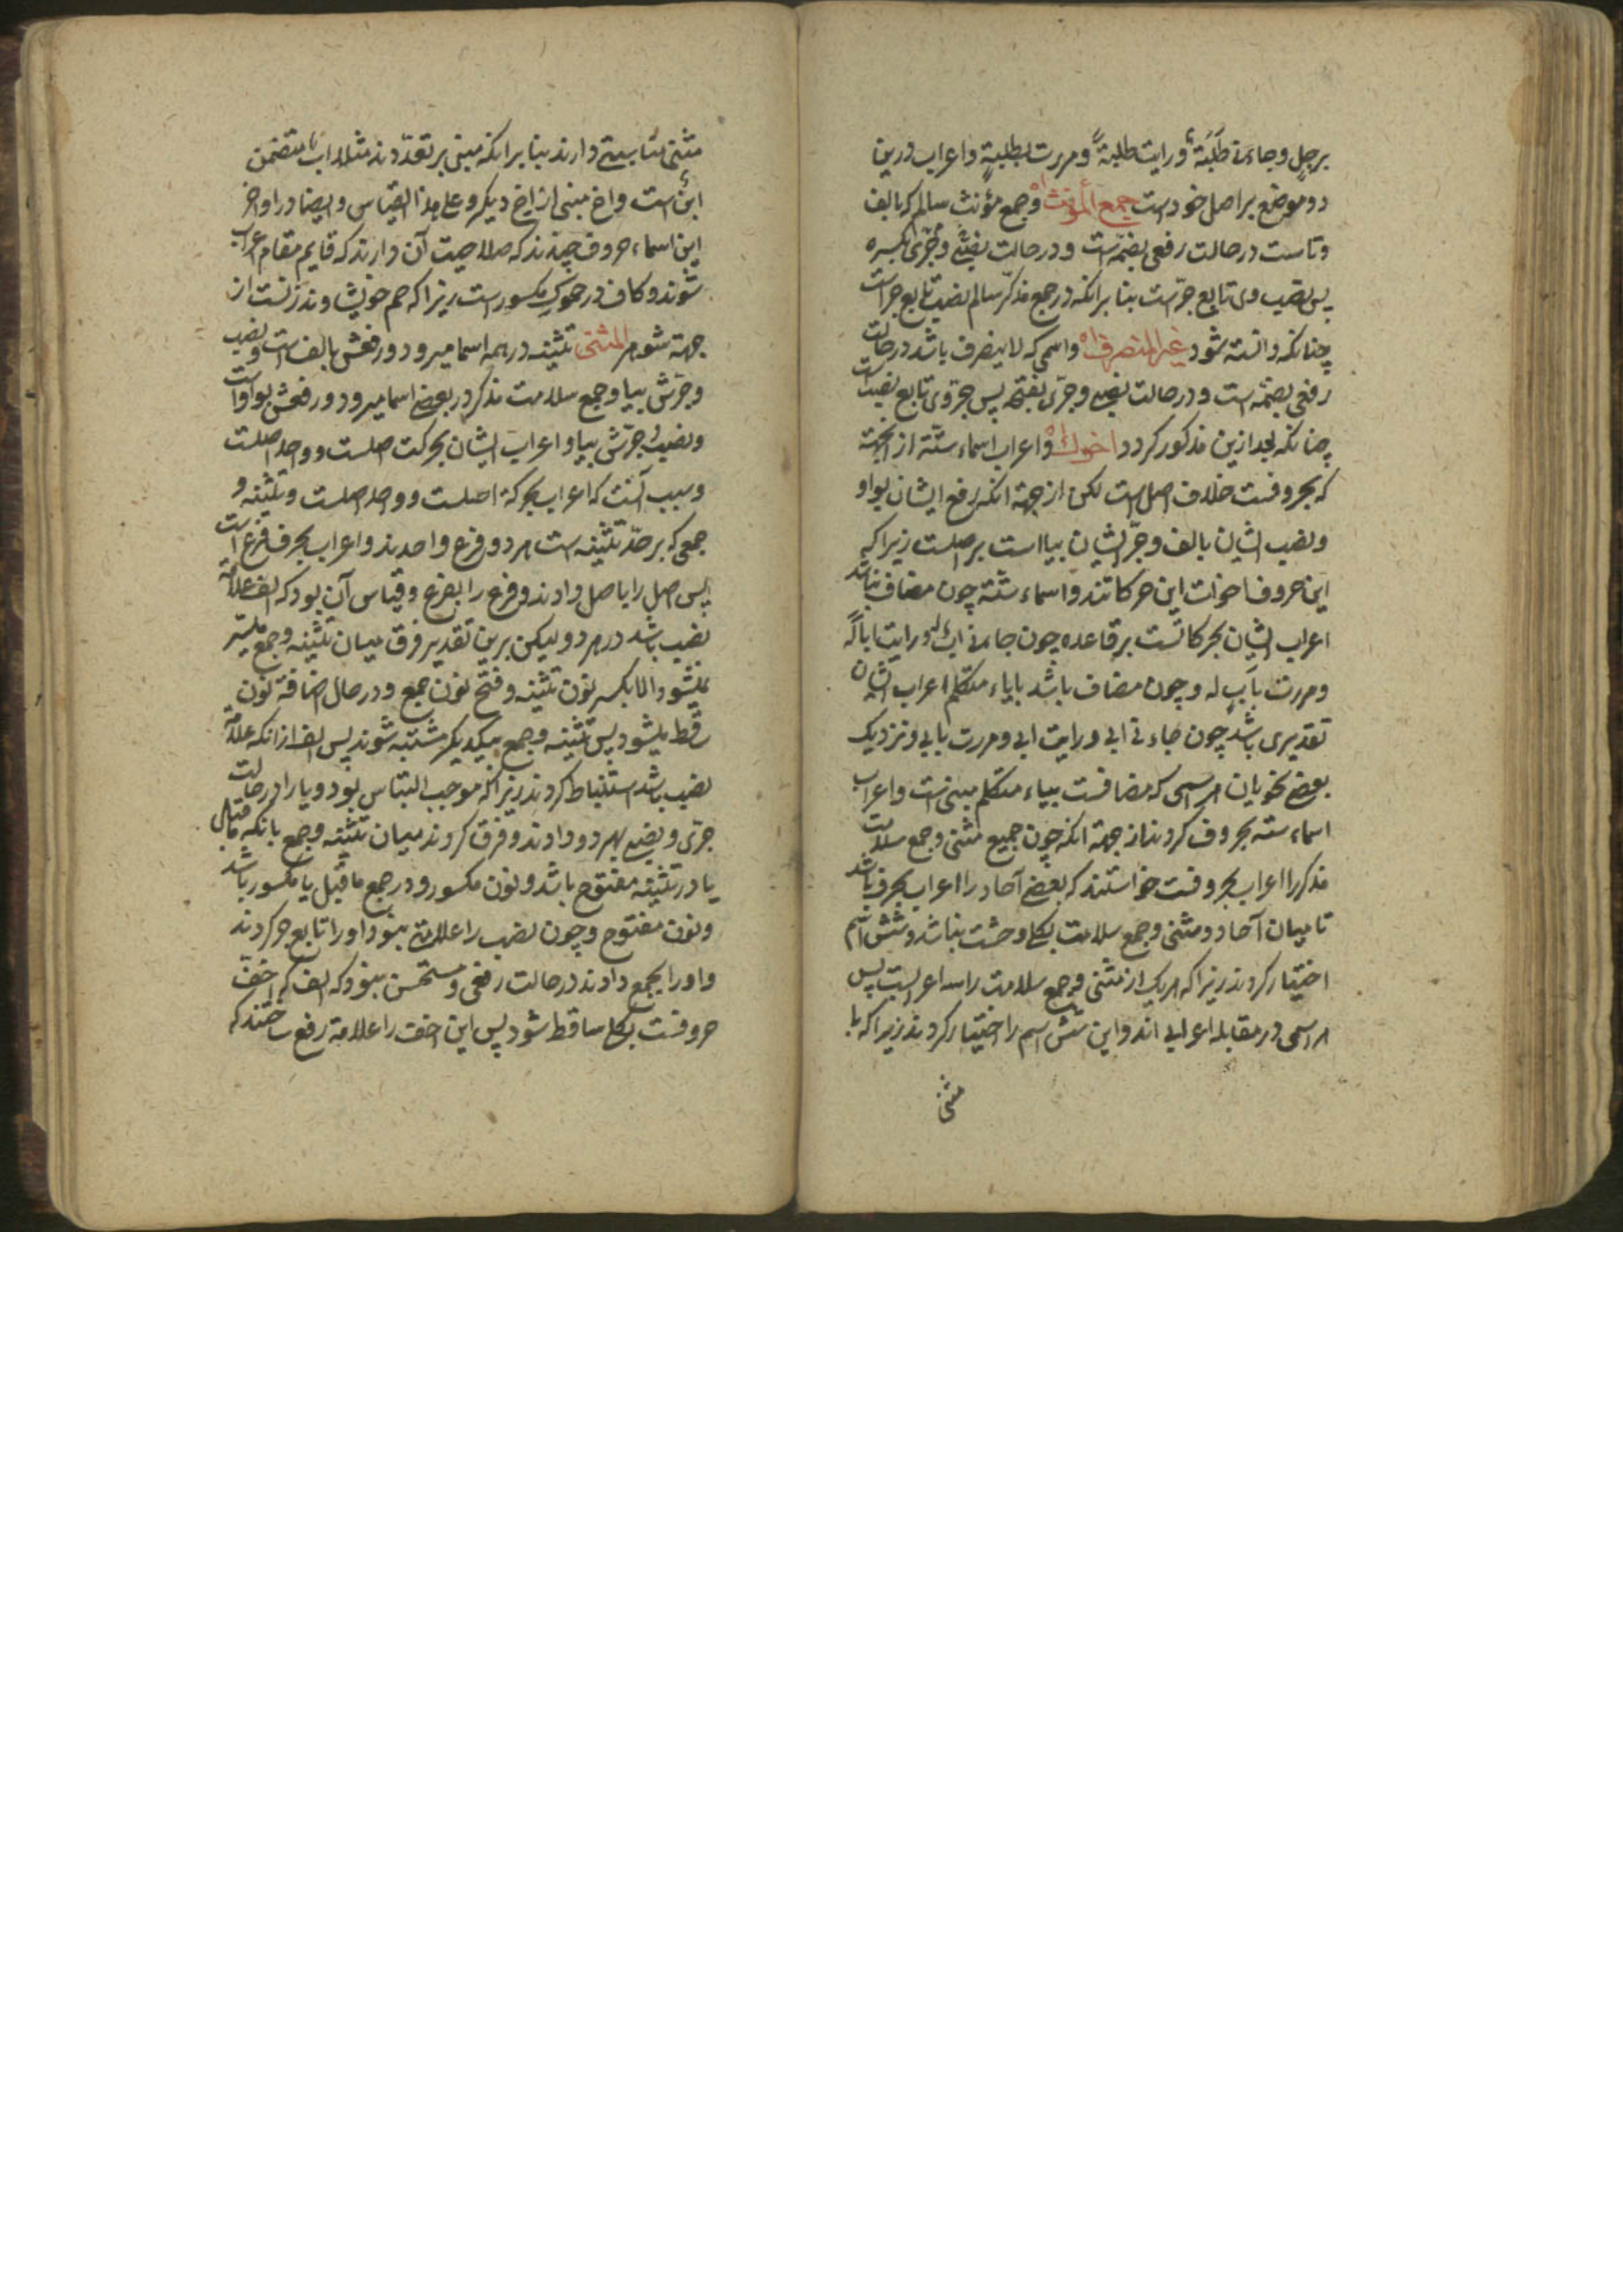 برجلٍ وجاءنی طلبةٌ ورایت طلبةً ومررت بطلبةٍ واعراب درین
دو موضع بر اصل خود است جمع المؤنث اه وجمع مؤنث سالم که بالف
وتاست در حالت رفعی بضمّه است ودر حالت نصبی وجرّی بکسره
پس نصب وی تابع جرّست بنا برانکه در جمع مذکّر سالم نصب تابع جرّ است
چنانکه دانسته شود غیر المنصرف اه واسمی که لا ینصرف باشد در حالت
رفعی بضمّه است ودر حالت نصبی وجرّی بفتحه پس جرّ وی تابع نصب است
چنانکه بعد ازین مذکور کردد اخوك اه واعراب اسماء ستّه از انجهة
که بحروفست خلاف اصل است لکن از جهة انکه رفع ایشان بواو
ونصب ایشان بالف وجرّ ایشان بیا است بر اصلست زیراکه
این حروف اخوات این حرکاتند واسماء ستّه چون مضاف نباشد
اعراب ایشان بحرکاتست بر قاعده چون جاءنی ابٌ له ورایت اباً له
ومررت بابٍ له وچون مضاف باشد بایاء متکلم اعراب ایشان
تقدیری باشد چون جاءنی ابی ورایت ابی ومررت بابی ونزدیک
بعضی نحویان هر اسمی که مضافست بیاء متکلم مبنی است واعراب
اسماء سته بحروف کردند از جهة انکه چون جمیع مثنی وجمع سلامت
مذکر را اعراب بحروفست خواستند که بعضی آحاد را اعراب بحرف باشد
تا میان آحاد ومثنی وجمع سلامت بکلی وحشت نباشد وشش اسم
اختیار کردند زیراکه هریک از مثنی وجمع سلامت را سه اعرابست پس
هر اسمی در مقابله اعرابی اند واین شش اسم را اختیار کردند زیراکه با
مثنی
مثنی مناسبتی دارند بنا برانکه مبنی بر تعدّدند مثلا اب متضمن
ابن است واخ مبنی از اخ دیکر وعلی هذا القیاس وایضا در اواخر
این اسماء حروف چندند که صلاحیت آن دارند که قایم مقام اعراب
شوند وکاف در حموكِ مکسور است زیراکه حم خویشاوند زنست از
جهة شوهر المثنی تثنیه در همه اسما میرود ورفعش بالف است ونصب
وجرّش بیا وجمع سلامت مذکر در بعضی اسما میرود ورفعش بواو است
ونصب وجرّش بیا واعراب ایشان بحرکت اصلست وواحد اصلست
وسبب آنست که اعراب بحرکة اصلست وواحد اصلست وتثنیه و
جمعی که بر حدّ تثنیه است هر دو فرع واحدند واعراب بحرف فرع است
پس اصل را باصل دادند وفرع را بفرع وقیاس آن بود که الف علامة
نصب باشد در هر دو ولیکن برین تقدیر فرق میان تثنیه وجمع میسّر
نمیشود الا بکسر نون تثنیه وفتح نون جمع ودر حال اضافة نون
ساقط میشود پس تثنیه وجمع بیکدیکر مشتبه شوند پس الف از انکه علامة
نصب باشد استنباط کردند زیراکه موجب التباس بود ویا را در حالت
جرّی ونصبی بهر دو دادند وفرق کردند میان تثنیه وجمع بانکه ماقبل
یا در تثنیه مفتوح باشد ونون مکسور ودر جمع ماقبل یا مکسور باشد
ونون مفتوح وچون نصب را علامتی نبود او را تابع جر کردند
واو را بجمع دادند در حالت رفعی ومستحسن نبود که الف که اخفّ
حروفست بکلی ساقط شود پس این اخف را علامة رفع ساختند که